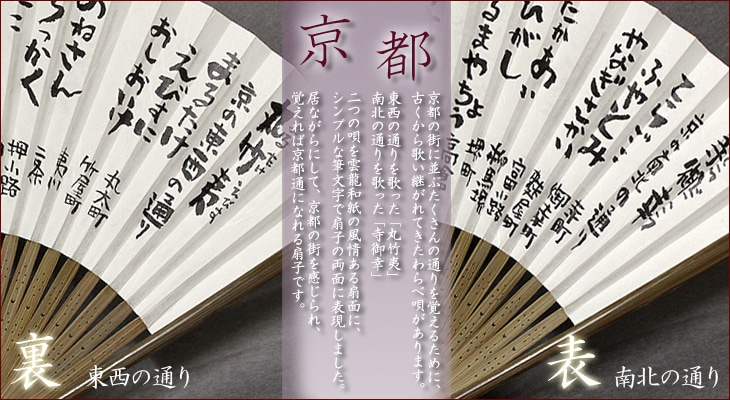 京都
京都の街に並ぶたくさんの通りを覚えるために、
古くから歌い継がれてきたわらべ唄があります。
東西の通りを歌った「丸竹夷」
南北の通りを歌った「寺御幸」
二つの唄を雲龍和紙の風情ある扇面に、
シンプルな筆文字で扇子の両面に表現しました。
居ながらにして、京都の街を感じられ、
覚えれば京都通になれる扇子です。
京の東西の通り
まるたけ
えびすに
おしおいけ
あねさん
ろっかく
丸太町
竹屋町
夷川
二条
押小路
裏
東西の通り
京の南北の通り
ごこ
ふやとみ
やなぎさかい
たかあい
ひがし
るまやちょ
寺町
御幸町
麩屋町
富小路
柳馬場
堺町
表
南北の通り